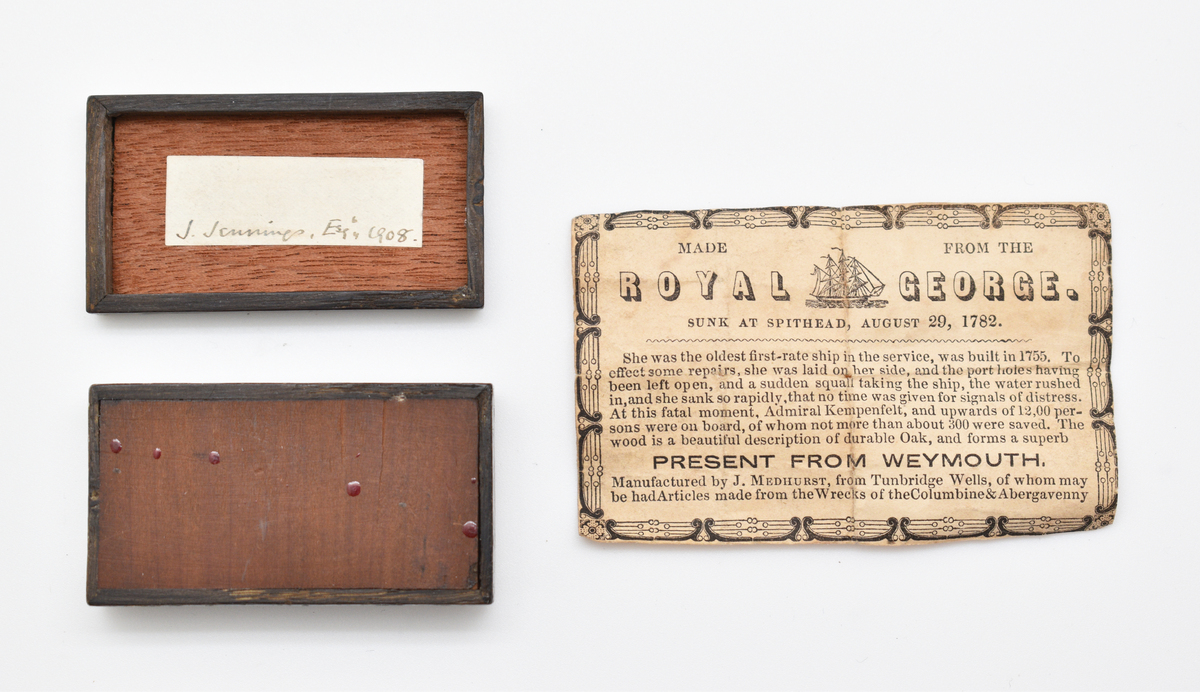 J. Jennings, Esqr 1908.
MADE FROM THE
ROYAL GEORGE.
SUNK AT SPITHEAD, AUGUST 29, 1782.
She was the oldest first-rate ship in the service, was built in 1755. To
effect some repairs, she was laid on her side, and the port holes having
been left open, and a sudden squall taking the ship, the water rushed
in, and she sank so rapidly, that no time was given for signals of distress.
At this fatal moment, Admiral Kempenfelt, and upwards of 12,00 per-
sons were on board, of whom not more than about 300 were saved. The
wood is a beautiful description of durable Oak, and forms a superb
PRESENT FROM WEYMOUTH.
Manufactured by J. MEDHURST, from Tunbridge Wells, of whom may
be had Articles made from the Wrecks of the Columbine & Abergavenny